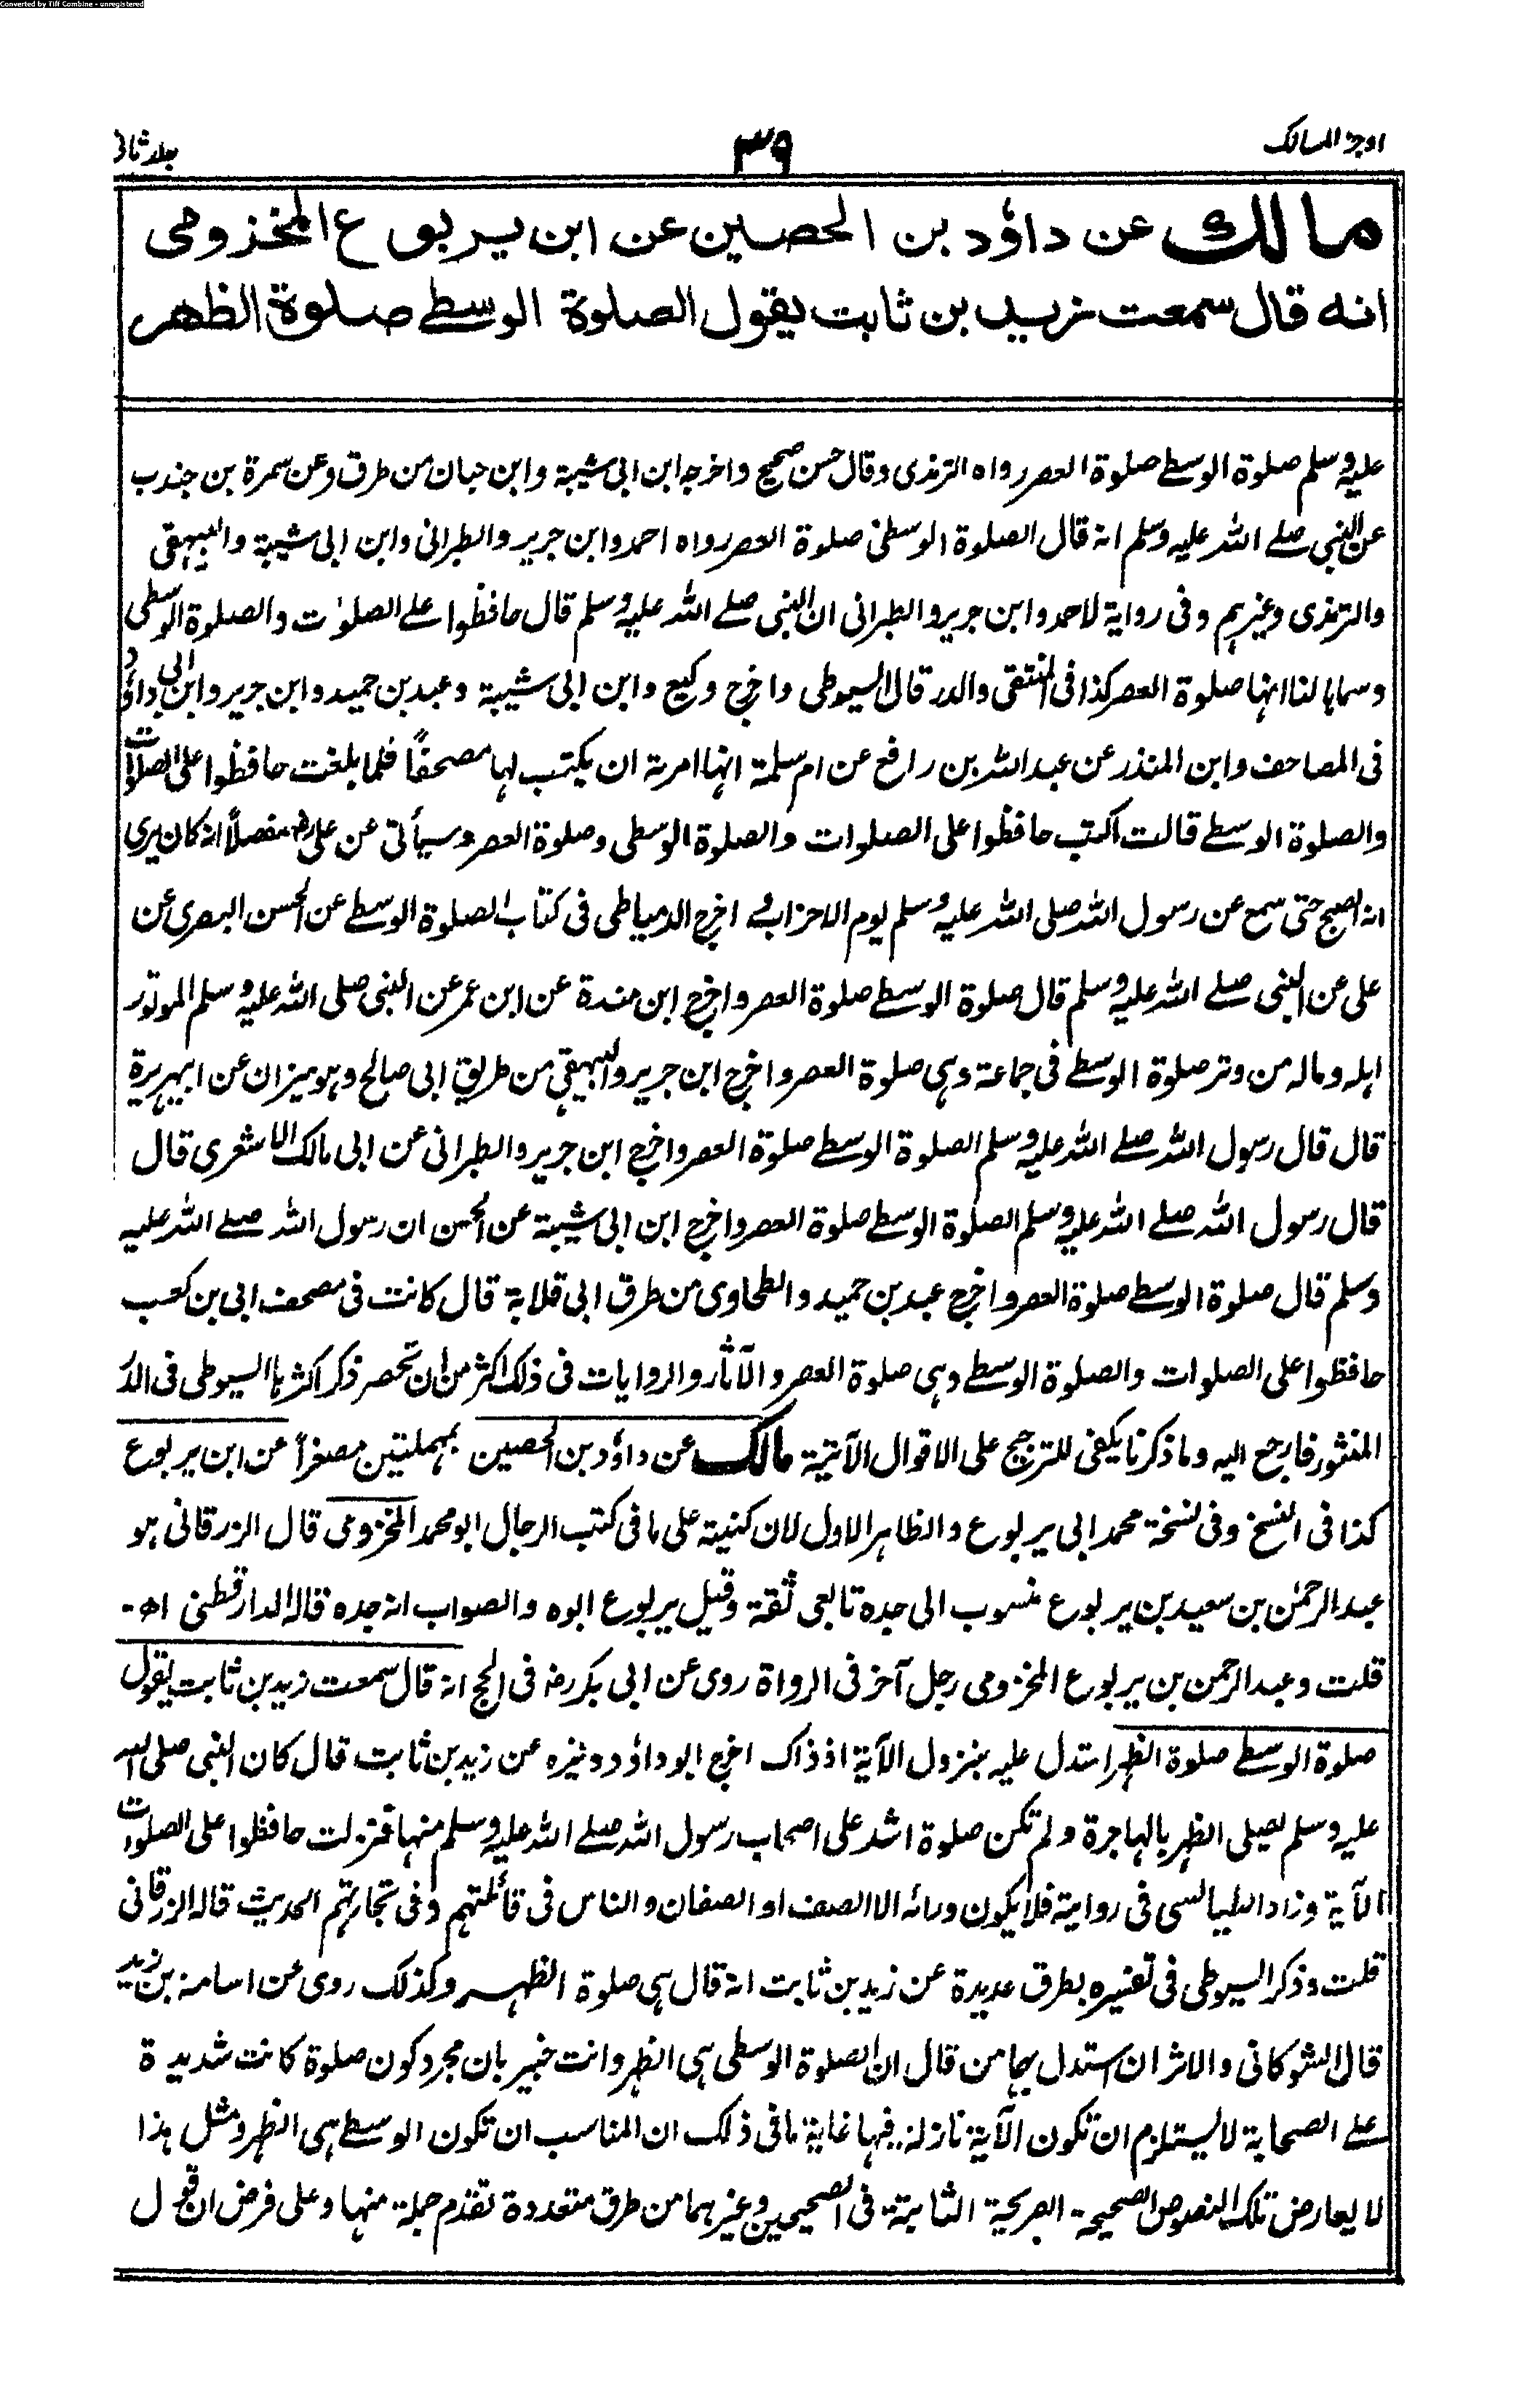 Converted by Tiff Combine - unregistered
اوجز المسالك
٣٩
جلد ثانی
مالك عن داؤد بن الحصين عن ابن يربوع المخزومي
انه قال سمعت زيد بن ثابت يقول الصلوة الوسطے صلوة الظهر
عليه وسلم صلوة الوسطے صلوة العصر رواه الترمذى وقال حسن صحيح واخرجه ابن ابى شيبة وابن حبان من طرق وعن سمرة بن جندب
عن النبى صلے الله عليه وسلم انه قال الصلوة الوسطىٰ صلوة العصر رواه احمد وابن جرير والطبرانى وابن ابى شيبة والبيهقى
والترمذى وغيرہم وفى رواية لاحمد وابن جرير والطبرانى ان النبى صلے الله عليه وسلم قال حافظوا علے الصلوٰت والصلوة الوسطى
وسماہا لنا انہا صلوة العصر كذا فى المنتقى والدر قال السيوطى واخرج وكيع وابن ابى شيبة وعبد بن حميد وابن جرير وابن ابى داؤد
فى المصاحف وابن المنذر عن عبد الله بن رافع عن ام سلمة انہا امرته ان يكتب لہا مصحفاً فلما بلغت حافظوا على الصلوات
والصلوة الوسطے قالت اكتب حافظوا على الصلوات والصلوة الوسطى وصلوة العصر وسيأتى عن على رض مفصلاً انه كان يرى
انه الصبح حتى سمع عن رسول الله صلى الله عليه وسلم يوم الاحزاب و اخرج الدمياطى فى كتاب الصلوة الوسطے عن الحسن البصرى عن
على عن النبى صلے الله عليه وسلم قال صلوة الوسطے صلوة العصر واخرج ابن مندة عن ابن عمر عن النبى صلى الله عليه وسلم الموتور
اہله وماله من وتر صلوة الوسطے فى جماعة وہى صلوة العصر واخرج ابن جرير والبيہقى من طريق ابى صالح وہو ميزان عن ابيہريرة
قال قال رسول الله صلے الله عليه وسلم الصلوة الوسطے صلوة العصر واخرج ابن جرير والطبرانى عن ابى مالك الاشعرى قال
قال رسول الله صلے الله عليه وسلم الصلوة الوسطے صلوة العصر واخرج ابن ابى شيبة عن الحسن ان رسول الله صلے الله عليه
وسلم قال صلوة الوسطے صلوة العصر واخرج عبد بن حميد والطحاوى من طرق ابى قلابة قال كانت فى مصحف ابى بن كعب
حافظوا على الصلوات والصلوة الوسطے وہى صلوة العصر والآثار والروايات فى ذلك اكثر من ان تحصر ذكر اكثرہا السيوطى فى الدر
المنثور فارجع اليه وما ذكرنا يكفى للترجيح على الاقوال الآتية مالك عن داؤد بن الحصين بمہملتين مصغراً عن ابن يربوع
كذا فى النسخ وفى نسخة محمد ابى يربوع والظاہر الاول لان كنيته على ما فى كتب الرجال ابو محمد المخزومى قال الزرقانى ہو
عبد الرحمٰن بن سعيد بن يربوع منسوب الى جده تابعى ثقة وقيل يربوع ابوه والصواب انه جده قاله الدارقطنى اھ-
قلت وعبد الرحمن بن يربوع المخزومى رجل آخر فى الرواة روى عن ابى بكر رض فى الحج انه قال سمعت زيد بن ثابت يقول
صلوة الوسطے صلوة الظہر استدل عليه بنزول الآية اذ ذاك اخرج ابو داؤد وغيره عن زيد بن ثابت قال كان النبى صلى الله
عليه وسلم يصلى الظہر بالہاجرة ولم تكن صلوة اشد على اصحاب رسول الله صلے الله عليه وسلم منہا فنزلت حافظوا على الصلوات
الآية وزاد الطيالسى فى رواية فلا يكون ورائه الا الصف او الصفان والناس فى قائلتهم وفى تجارتہم الحديث قاله الزرقانى
قلت وذكر السيوطى فى تفسيره بطرق عديدة عن زيد بن ثابت انه قال ہى صلوة الظہر وكذلك روى عن اسامة بن زيد
قال الشوكانى والاثر ان استدل بہما من قال ان الصلوة الوسطى ہى الظہر وانت خبير بان مجرد كون صلوة كانت شديدة
علے الصحابة لا يستلزم ان تكون الآية نازلة فيہا غاية ما فى ذلك ان المناسب ان تكون الوسطے ہى الظہر ومثل ہذا
لا يعارض تلك النصوص الصحيحة الصريحة الثابتة فى الصحيحين وغيرہما من طرق متعددة تقدم جملة منہا وعلى فرض ان قول